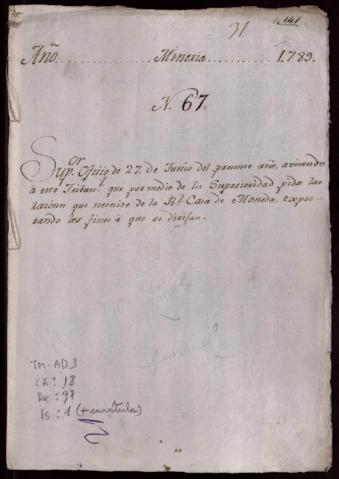 31
147
Año. Mineria. 1.789.
N. 67.
Sup.or Ofizio de 27. de Junio del presente año, avisando
á este Tribun.l que por medio de la Superioridad pida las
razones que necesite de la R.l Casa de Moneda, expre-
sando los fines á que se dirijan.
General
TM-AD3
CA: 18
Doc: 97
Fs: 1 (+ carátula)